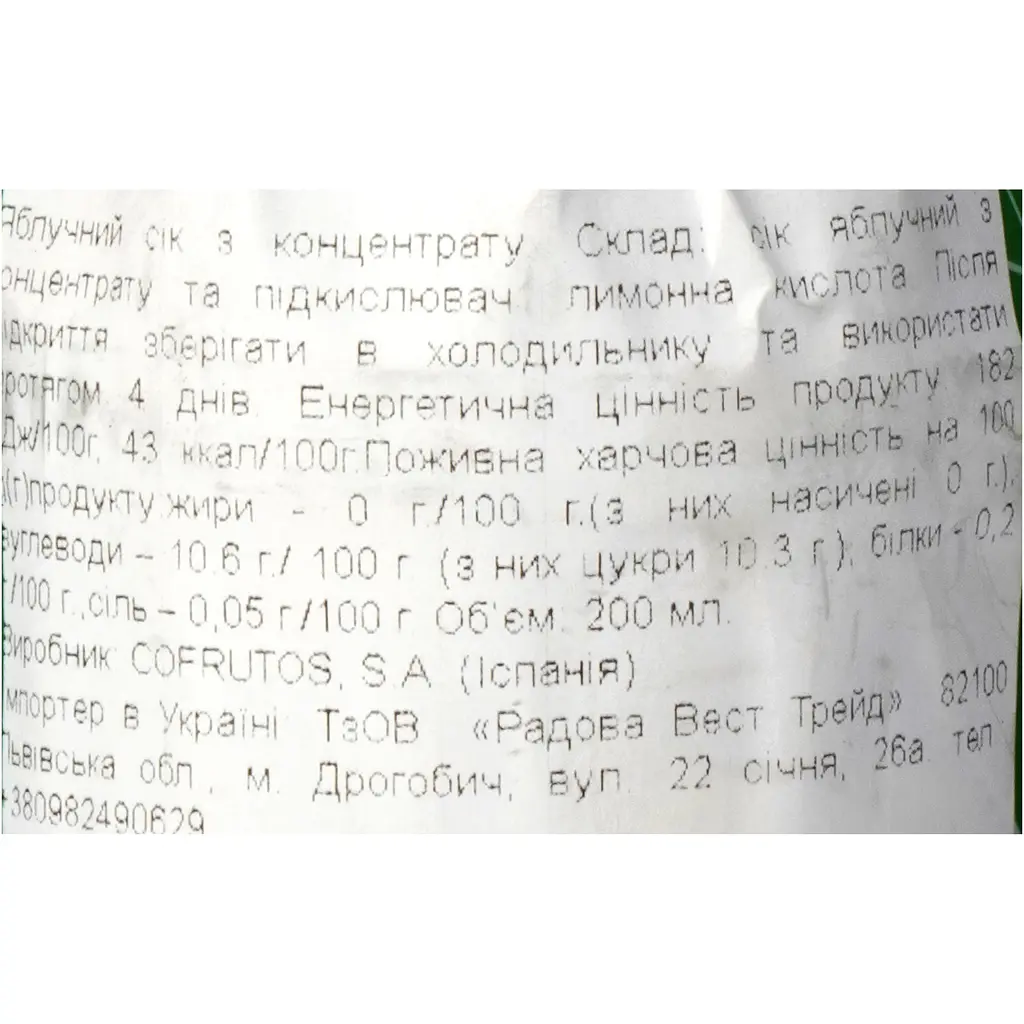 Яблучний сік з концентрату Склад: сік яблучний з
онцентрату та підкислювач: лимонна кислота Після
ідкриття зберігати в холодильнику та використати
ротягом 4 днів. Енергетична цінність продукту 182
Дж/100г, 43 ккал/100г.Поживна харчова цінність на 100
(г)продукту:жири - 0 г/100 г.(з них насичені 0 г.),
вуглеводи – 10.6 г./ 100 г. (з них цукри 10.3 г.), білки - 0,2
г/100 г.,сіль – 0,05 г/100 г. Об'єм: 200 мл.
Виробник: COFRUTOS, S.A. (Іспанія)
мпортер в Україні: ТзОВ «Радова Вест Трейд» 82100
Львівська обл., м. Дрогобич, вул. 22 січня, 26а. тел.
+380982490629